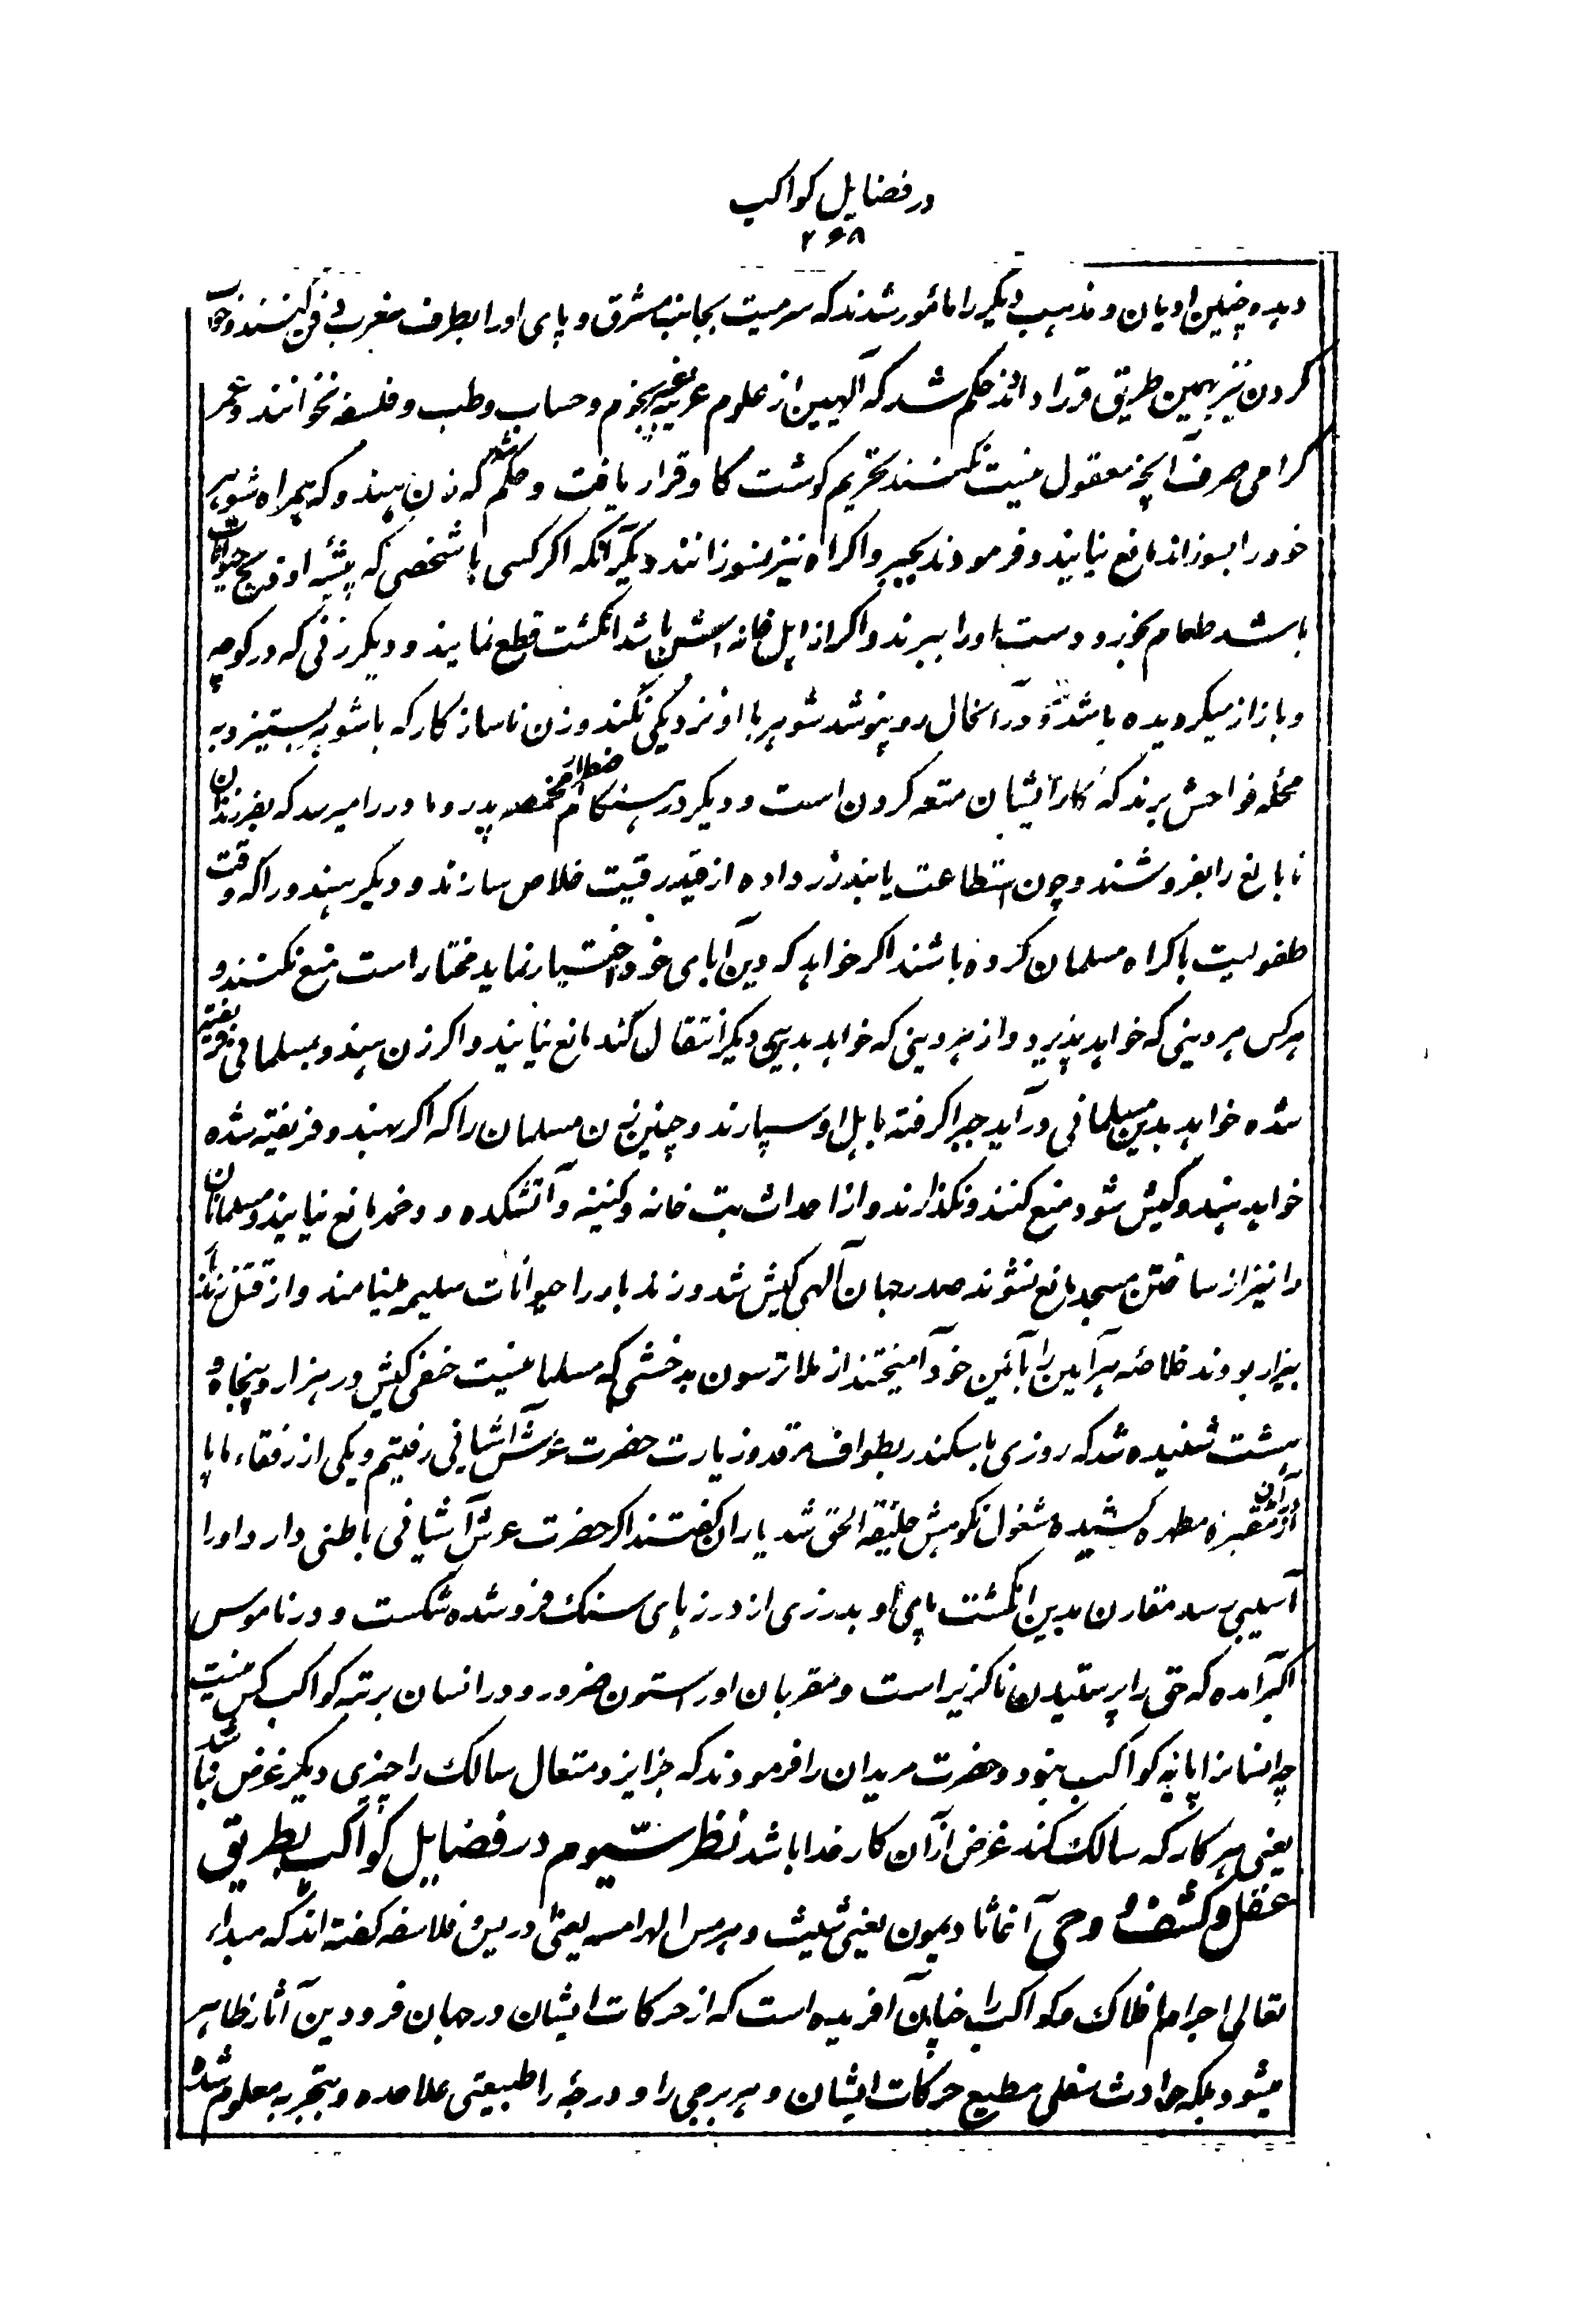 در فضایل کواکب
۲۶۸
دیده چنین ادیان و مذهب دیگر را مامور شدند که سر میت بجانب مشرق و پای او را بطرف مغرب دفن کنند و خواب
کردن نیز بهمین طریق قرار دادند حکم شد که آلهیین از علوم عربیه بغیر نجوم و حساب و طب و فلسفه نخوانند و عمر
گرامی صرف آنچه معقول نیست نکنند تحریم کوشت کاو قرار یافت و حکم شد که زن هندو که همراه شوهر
خود را بسوزاند مانع نیایند و فرمودند بجبر و اکراه نیز نسوزانند دیگر آنکه اکر کسی با شخصی که پیشه او ذبح حیوانات
باشد طعام بخورد دست او را ببرند و اکر از اهل خانه اش باشد انکشت قطع نمایند و دیگر زنی که در کوچه
و بازار میکردیده باشد و در آنحال رو نپوشد شوهر با او نزدیکی نکند و زن ناسازکار که با شوهر بستیزد به
محله فواحش برند که کار ایشان متعه کردن است و دیکر در هنکام اضطرار مخمصه پدر و مادر را میرسد که فرزندان
نابالغ را بفروشند و چون استطاعت یابند زر داده از قید رقیت خلاص سازند و دیکر هندو را که وقت
طفولیت باکراه مسلمان کرده باشند اکر خواهد که دین آبای خود اختیار نماید مختار است منع نکنند و
هر کس هر دینی که خواهد پذیرد و از هر دینی که خواهد بدیی دیکر انتقال کند مانع نیایند و اکر زن هندو بمسلمانی فریفته
شده خواهد بدین مسلمانی درآید جبرا کرفته باهل او سپارند و چنین زن مسلمان را که اکر بهندو فریفته شده
خواهد هندو کیش شود منع کنند و نکذارند و از احداث بت خانه و کنیسه و آتشکده و دخمه مانع نیایند و مسلمانان
را نیز از ساختن مسجد مانع نشوند صدر جهان آلهی کیش شد و زندبار را حیوانات سلیمه مینامند و از قتل زندبار
بیزار بودند خلاصه هر آیین را بآئین خود آمیختند از ملا ترسون بدخشی که مسلمانیست حنفی کیش در هزار و پنجاه و
هشت شنیده شد که روزی با سکندر بطواف مرقد و زیارت حضرت عرش آشیانی رفتیم و یکی از رفقاء ما پا
در آن مقبره مطهره کشیده مشغول نکوهش خلیفه الحق شد یاران کفتند اکر حضرت عرش آشیانی باطنی دارد او را
آسیبی رسد مقارن بدین انکشت پای او بدرزی از درزهای سنک فرو شده شکست و در ناموس
اکبر آمده که حق را پرستیدن ناکزیر است و مقربان او را ستودن ضرور و در انسان برتبه کواکب کس نیست
چه انسانرا پایه کواکب نبود و حضرت مریدان را فرمودند که جز ایزد متعال سالک را چیزی دیکر غرض نباشد
یعنی هر کار که سالک کند غرض از آن کار خدا باشد نظر سیوم در فضایل کواکب بطریق
عقل و کشف و وحی آغاثا دیمون یعنی شیث و هرمس الهرامسه یعنی ادریس و فلاسفه کفته اند که مبداء
تعالی اجرام افلاک و کواکب را چنان آفریده است که از حرکات ایشان در جهان فرودین آثار ظاهر
میشود بلکه حوادث سفلی مطیع حرکات ایشان و هر برجی را و درجه را طبیعتی علاحده و بتجربه معلوم شده